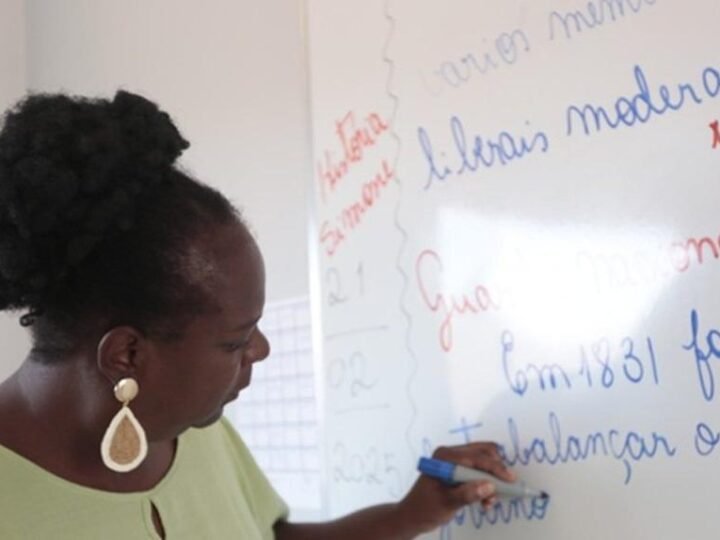 História
Simone
21
02
2025
vários mem
liberais modera
Gua nacion
Em 1831 fo
abalançar o
governo